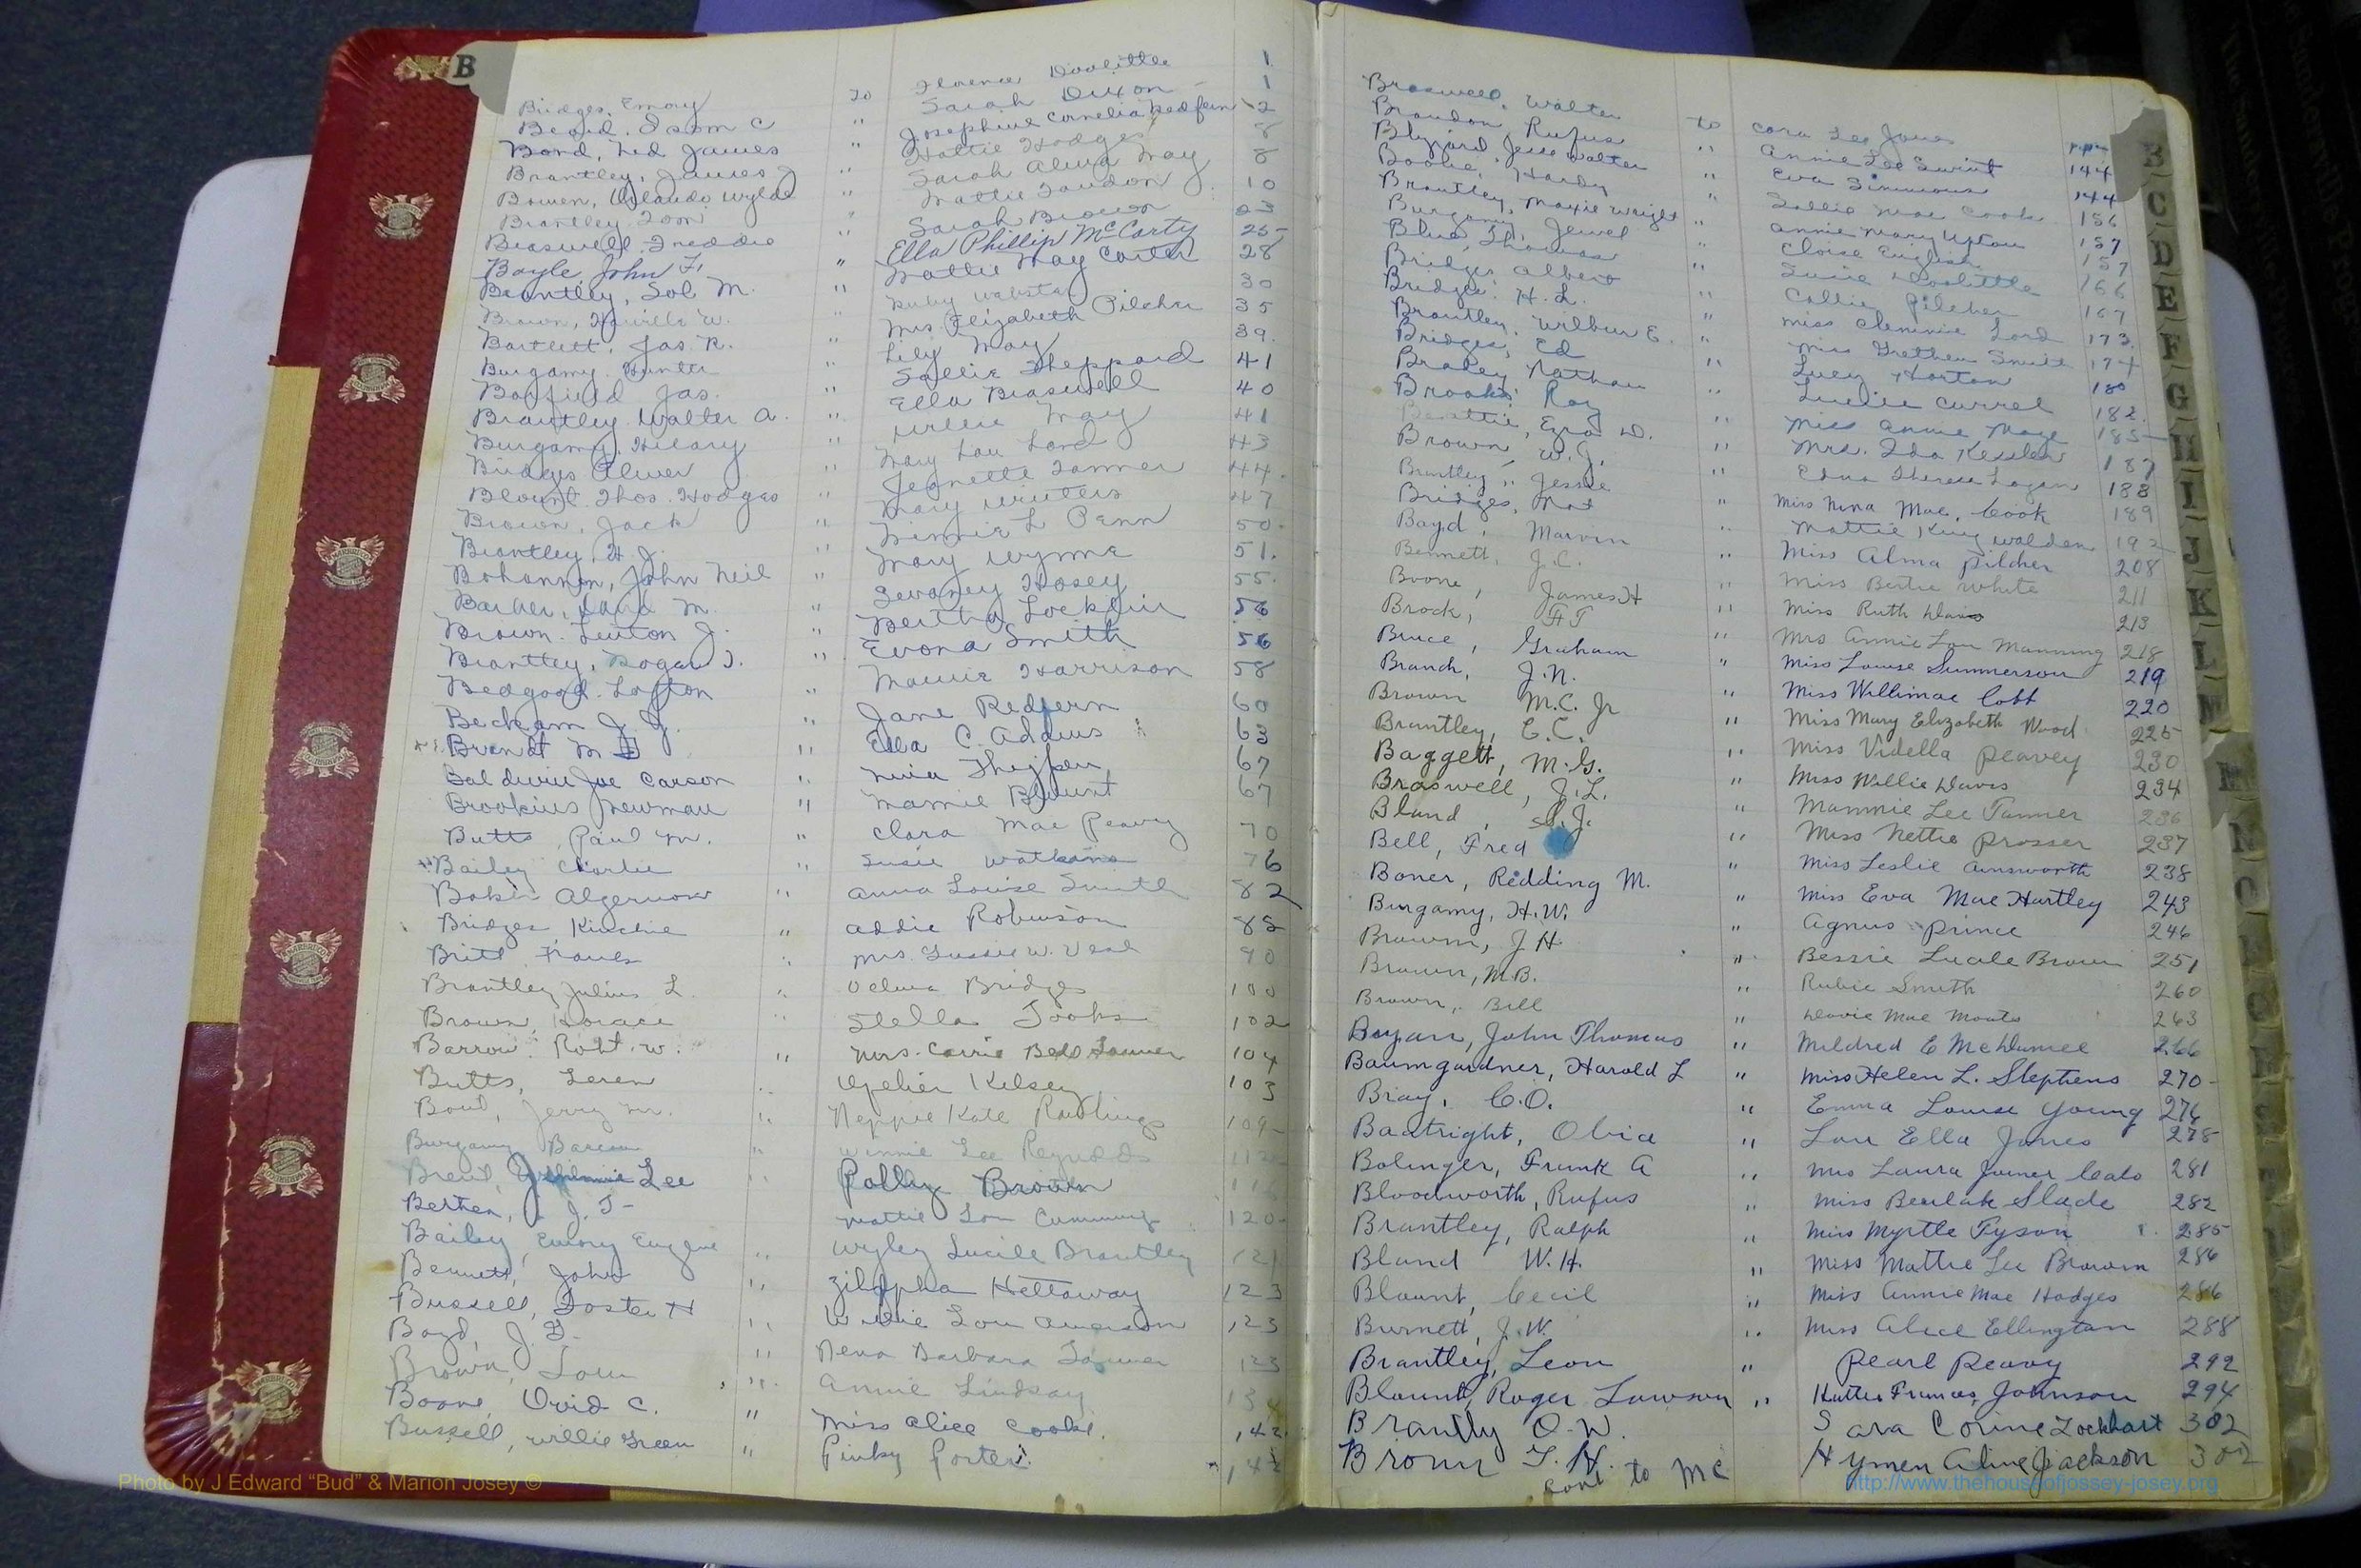 B
Bridges, Emory to Florence Doolittle 1
Beard, Isom C " Sarah Dixon 1
Bond, Ned James " Josephine Cornelia Redfern 2
Brantley, James J " Hattie Hodges 8
Bowen, Orlando Wylde " Sarah Alma May 8
Brantley, Tom " Mattie 10
Braswell, Freddie " Sarah Brown 23
Boyle, John F. " Ella Phillip McCarty 25
Brantley, Sol M. " Mattie May Carter 28
Brown, W. " Ruby Webster 30
Bartlett, Jas. R. " Mrs Elizabeth Pilcher 35
Burgamy, Hunter " Lily May 39.
Barfield Jas. " Sallie Sheppard 41
Brantley Walter A. " Ella Braswell 40
Burgamy, Hilary " Willie May 41
Bridges Oliver " Mary Lou Lord 43
Blount, Thos. Hodges " Jeanette Tanner 44.
Brown, Jack " Mary Winters 47
Brantley, H. J. " Minnie L Penn 50.
Bohannon, John Neil " Mary Wynne 51.
Barber, David M. " Hosey 55.
Brown, Linton J. " Bertha Locklair 56
Brantley, Logan J. " Evona Smith 56
Bedgood, Lofton " Mamie Harrison 58
Beckam J. J. " Jane Redfern 60
Brandt M " Ella C. Addius 63
Baldwin Joe Carson " Nina Thigpen 67
Brookins Newman " Mamie Blount 67
Butts Paul M. " Clara Mae Peavy 70
Bailey Charlie " Susie Watkins 76
Baker Algernon " Anna Louise Smith 82
Bridges Kinchie " Addie Robinson 85
Britt, " Mrs. Gussie W. Veal 90
Brantley Julius L. " Velma Bridges 100
Brown, Horace " Stella Tooks 102
Barrow, Robt. W. " Mrs. Carrie Bell Tanner 104
Butts, Leren " Ophelier Kelsey 103
Jerry M. " Neppie Kate Rawlings 109
Burgamy " Winnie Lee Reynolds 112
Lee " Polly Brown
J. T " Mattie Lou Cumming 120
Bailey, Emory Eugene " Wyley Lucile Brantley 121
Bennett, John " Zilppha Hattaway 123
Bussell, Foster H " Willie Lou Amerson 123
Boyd, J. " Nena Barbara Tanner 123
Brown, Lou " Annie Lindsay
Boone, Ovid C. " Miss Alice Cooke. 142
Bussell, Willie Green " Pinky Porter 142
Braswell, Walter to Cora Lee Jones
Brandon, Rufus " Annie Lee Swint 144
Blizzard, Jesse Walter " Eva Simmons 144
Hardy " Sallie Mae Cook 156
Brantley, Moxie Wright " Annie Mary Upton 157
Burgamy, Jewel " Cloise English 157
Blue, Thomas " Susie Doolittle 166
Bridges Albert " Callie Pilcher 167
Bridges, H. L. " Miss Clemmie Lord 173
Brantley, Wilbur E. " Miss Grethen Smith 174
Bridges, Ed " Lucy Horton 180
Braley Nathan " Lucile Currel 182.
Brooks, Roy " Miss Annie Maye 185
Beattie, Ezra D. " Mrs. Ida Kessler 187
Brown, W. J. " Edna Therese Logan 188
Brantley, Jessie " Miss Nina Mae, Cook 189
Bridges, Nat " Mattie King Walden 192
Boyd, Marvin " Miss Alma Pilcher 208
Bennett, J. C. " Miss Bertie White 211
Boone, James H " Miss Ruth Davis 213
Brock, " Mrs Annie Lou Manning 218
Bruce, Graham " Miss Louise Summerson 219
Branch, J. N. " Miss Willimae Cobb 220
Brown M.C. Jr " Miss Mary Elizabeth Wood 225
Brantley, E. C. " Miss Videlle Peavey 230
Baggett, M. G. " Miss Willie Davis 234
Braswell, J. L. " Mammie Lee Tanner 236
Bland, J. " Miss Nettie Prosser 237
Bell, Fred " Miss Leslie Ainsworth 238
Boner, Redding M. " Miss Eva Mae Hartley 243
Burgamy, H. W. " Agnus Prince 246
Brown, J H. " Bessie Lucile Brown 251
Brown, M. B. " Rubie Smith 260
Brown, Bill " Mae 263
Bryan, John Thomas " Mildred E 266
Baumgardner, Harold L " Miss Helen L. Stephens 270
Bray, C. O. " Emma Louise Young 276
Boatright, Obia " Lou Ella Jones 278
Bolinger, Frank A " Mrs Laura Joiner Cato 281
Bloodworth, Rufus " Miss Beulah Slade 282
Brantley, Ralph " Miss Myrtle Tyson 285
Bland W. H. " Miss Mattie Lee Brown 286
Blount, Cecil " Miss Annie Mae Hodges 286
Burnett, J. W. " Miss Alice Ellington 288
Brantley, Leon " Pearl Peavy 292
Blount, Roger Lawson " Hattie Frances Johnson 294
Brantly O. W. Sara Corine Lockhart 302
Brown T. H. Hymen Aline Jackson 302
cont to Mc
B
C
D
E
F
G
H
I
J
K
L
M
Photo by J Edward “Bud” & Marion Josey ©
http://www.thehouseofjossey-josey.org